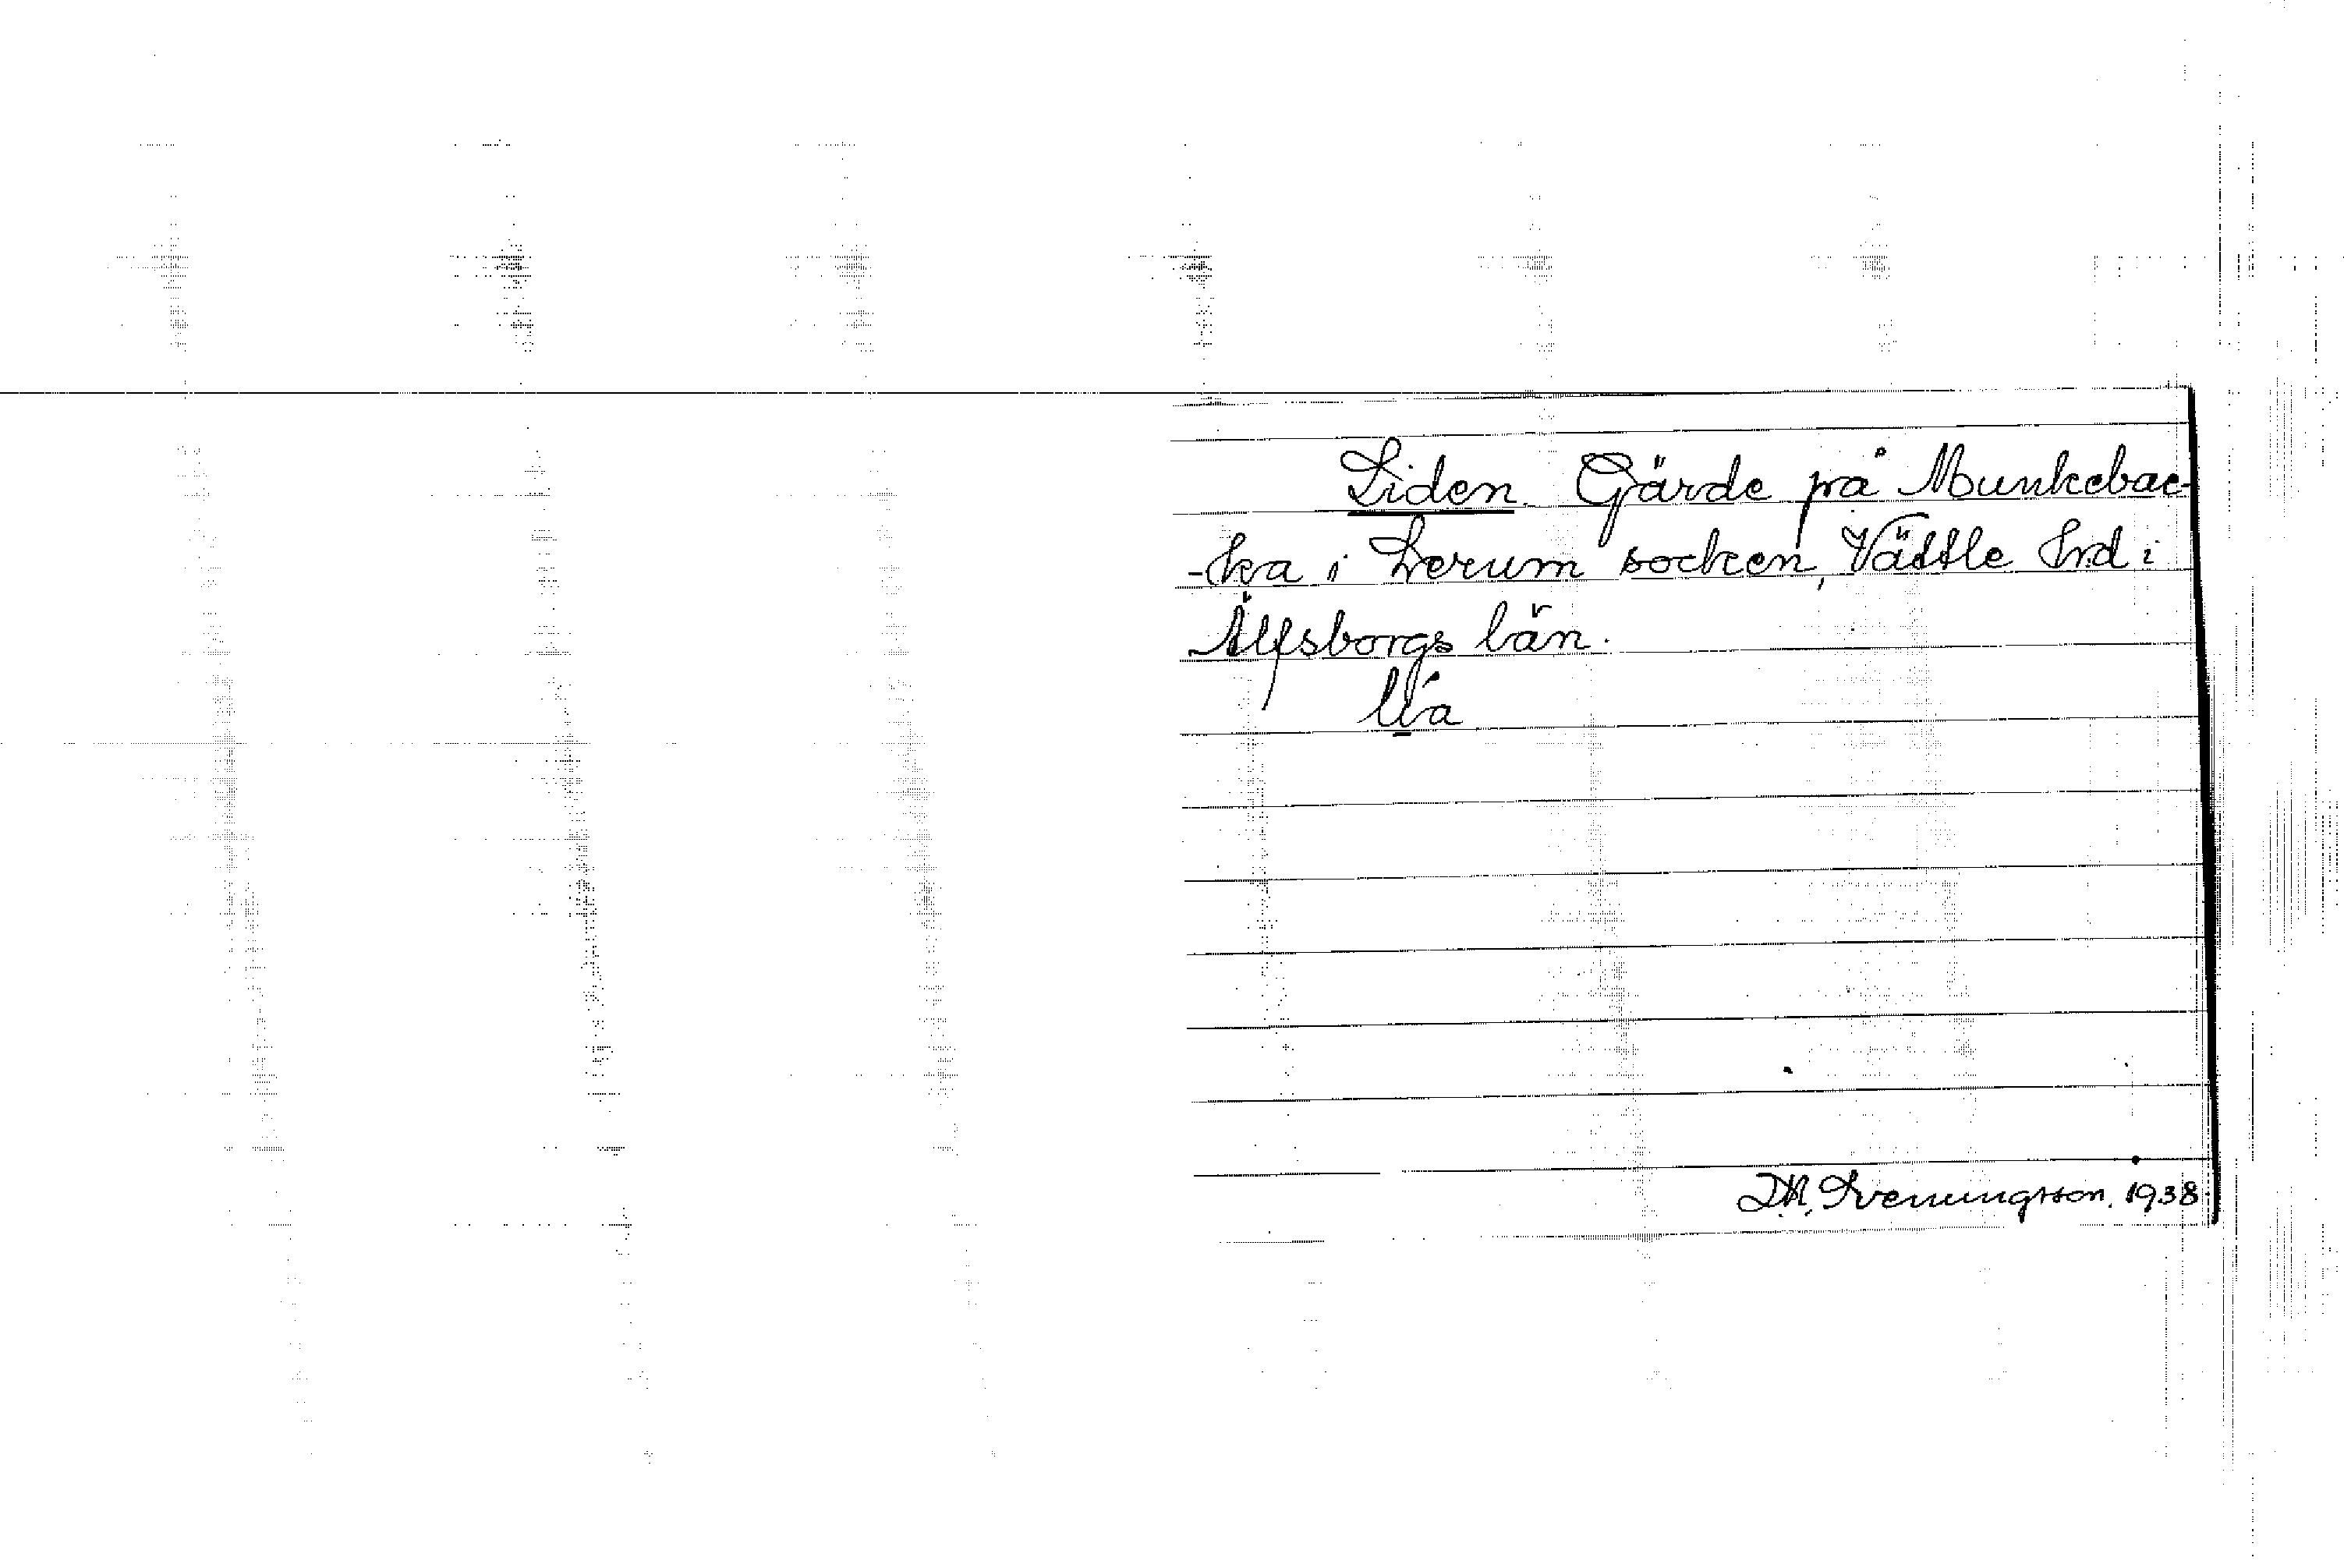 Liden. Gärde på Munkebac-
-ka i Lerum socken, Vättle hrd i
Älfsborgs län.
lía
D.N. Svenningsson. 1938